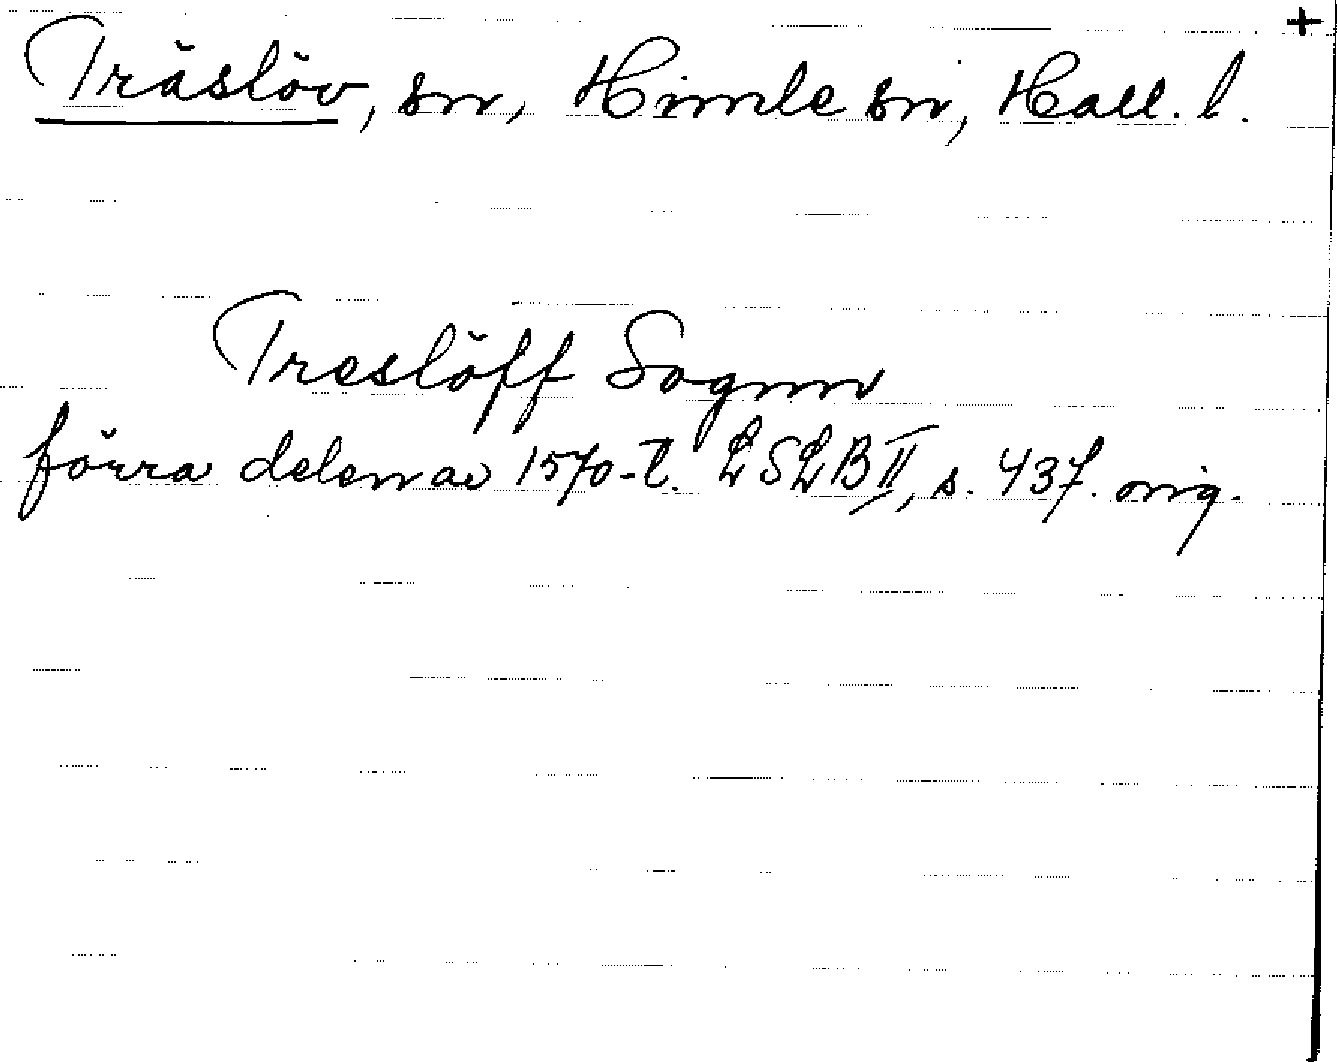 +
Träslöv, sn, Himle hd, Hall. l.
Treslöff Sognn
förra delen av 1570-t. LSLB II, s. 437. orig.